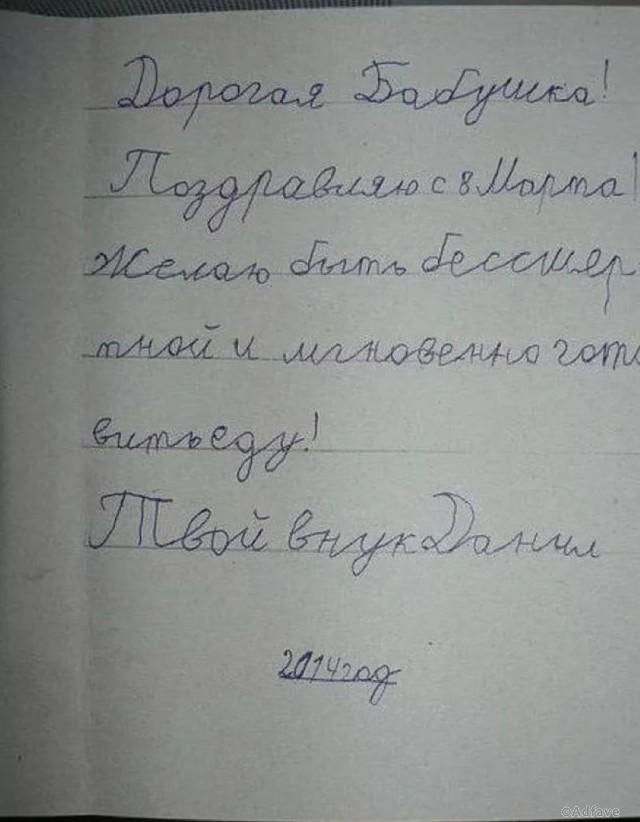 Дорогая Бабушка!
Поздравляю с 8 Марта!
Желаю быть бессмер-
тной и мгновенно гото
вить еду!
Твой внук Данил
2014 год
©Adfave